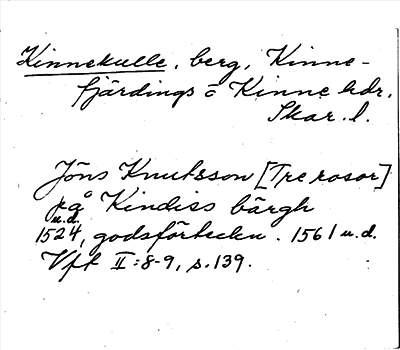 Kinnekulle, berg, Kinne-
fjärdings o Kinne hdr.
Skar. l.
Jöns Knutsson [Tre rosor]
på Kindiss bärgh
u.d.
1524, godsförteckn. 1561 u.d.
Vft II:8-9, s.139.